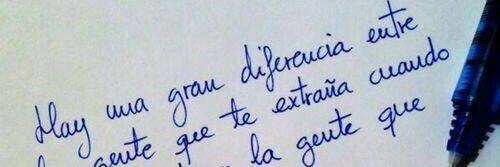 Hay una gran diferencia entre
gente que te extraña cuando
la gente que